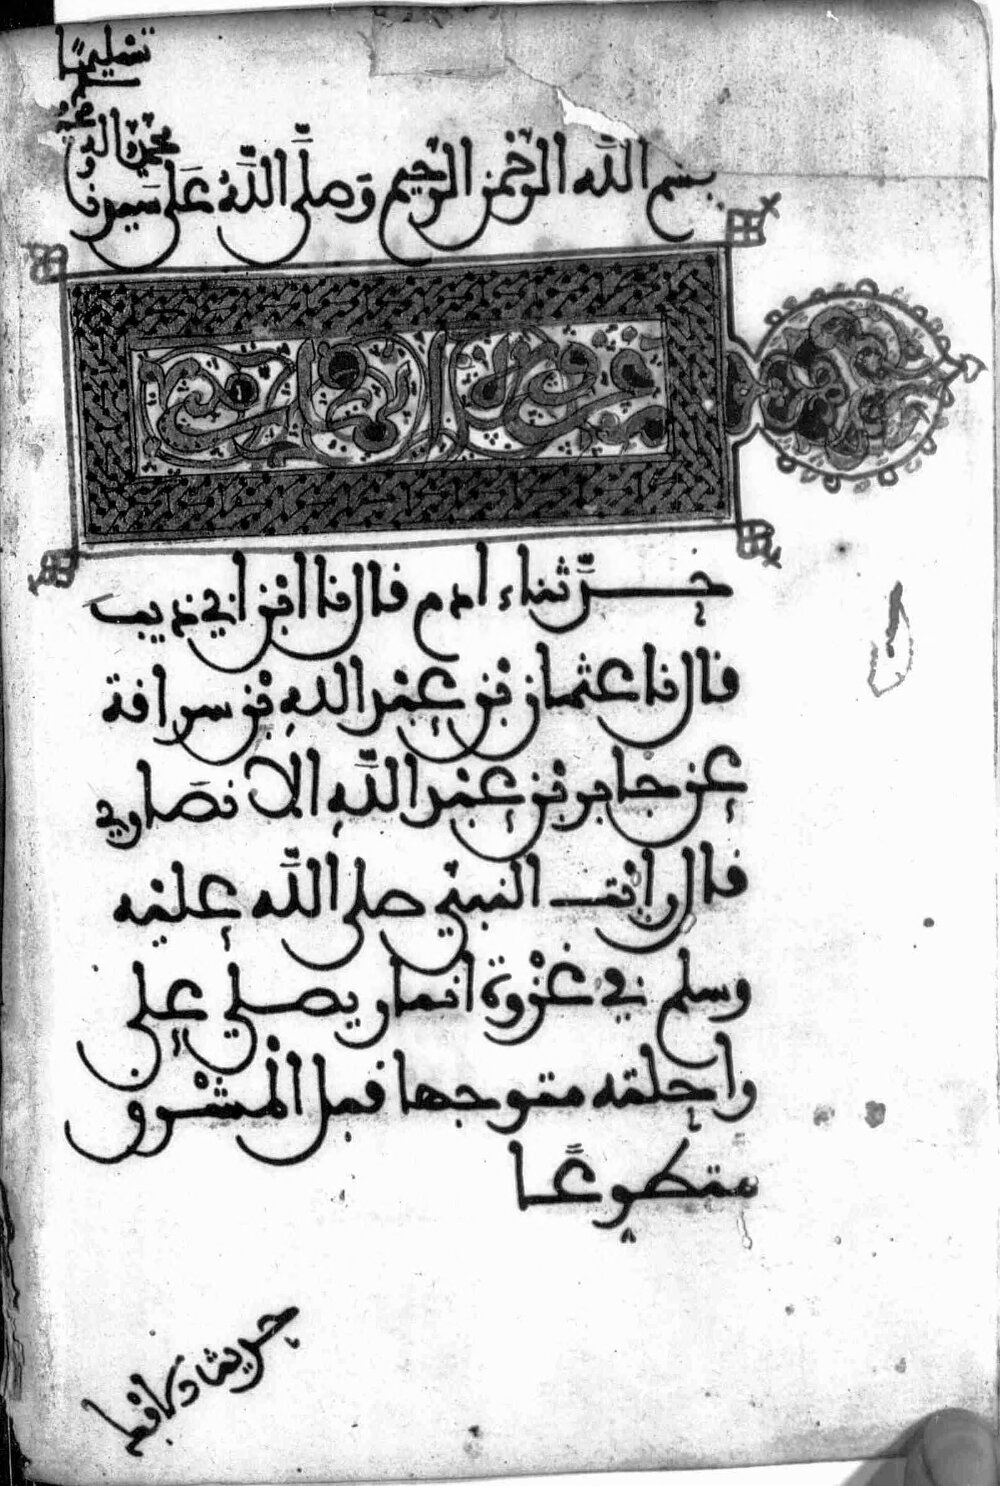 بسم الله الرحمن الرحيم وصلى الله على سيدنا
محمد واله
تسليما
غزوة انمار
حدثناء ادم قال نا ابن ابي ذيب
قال نا عثمان بن عبد الله بن سراقة
عن جابر بن عبد الله الانصاري
قال رايت النبي صلى الله عليه
وسلم في غزوة انمار يصلي على
راحلته متوجها قبل المشرق
متطوعا
حديث